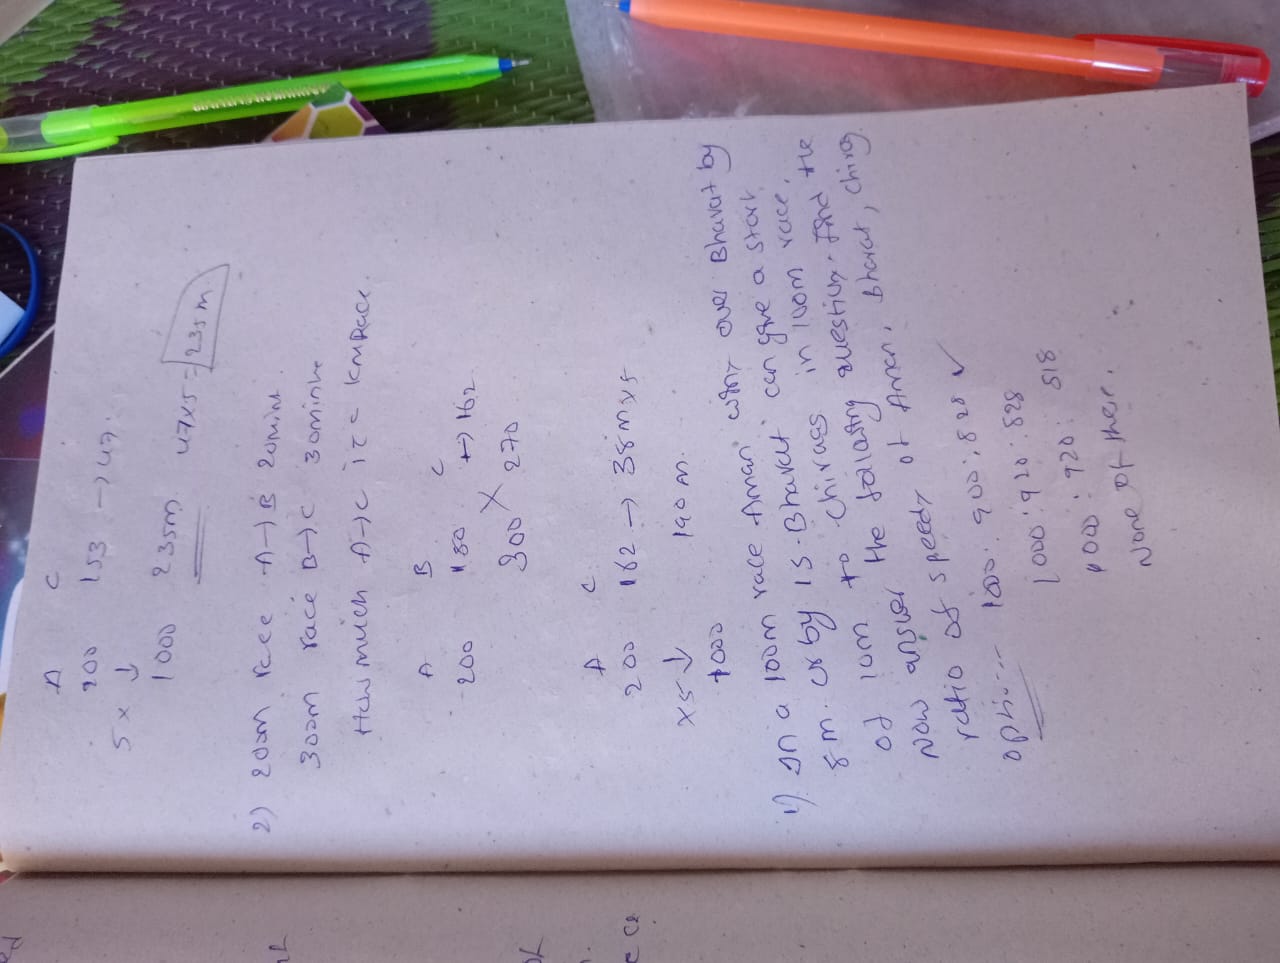 A C
200 153 → 47.
5 x ↓
1000 235m 47x5 = 235m
2) 200m race A→B 20mint.
300m race B→C 30mint
How much A→C in a km race.
A B C
200 180 → 162
300 X 270
A C
200 162 → 38m x5
x5 ↓
1000 190m.
1) In a 100m race Aman wins over Bharat by
8m. or by 1s. Bharat can give a start
of 10m to chirag in 100m race.
Now answer the following question. Find the
ratio of speeds of Aman, Bharat, chirag.
opti.... 1000 : 900 : 828 ✓
1000 : 920 : 828
1000 : 920 : 818
None of these.